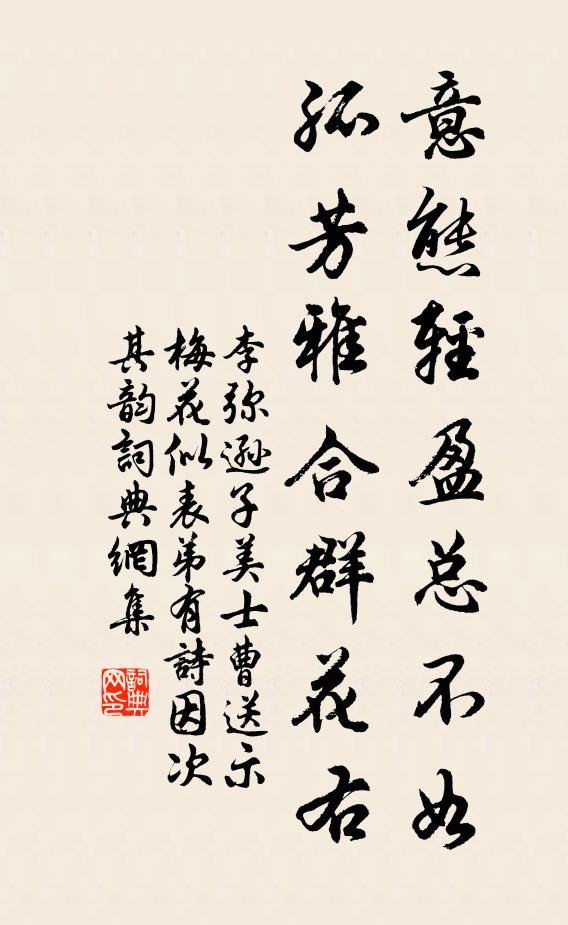 意態輕盈总不如
孤芳雅合群花右
李弥遜子美士曹送示
梅花似表弟有詩因次
其韵詞典網集
詞典
网印